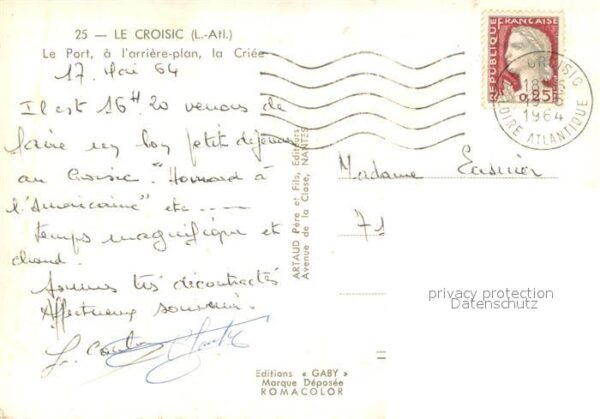 25 — LE CROISIC (L.-Atl.)
Le Port, à l'arrière-plan, la Criée
17 Mai 64
Il est 16H 20 venons de
faire un bon petit déjeuner
au Croisic "Homard à
l'Américaine" etc ----
temps magnifique et
chaud.
Sommes très décontractés
Affectueux souvenir.
ARTAUD Père et Fils, Editeurs
Avenue de la Close, NANTES
Editions « GABY »
Marque Déposée
ROMACOLOR
REPUBLIQUE FRANÇAISE
0,25F
CROISIC
18H
1964
LOIRE ATLANTIQUE
Madame
71
privacy protection
Datenschutz